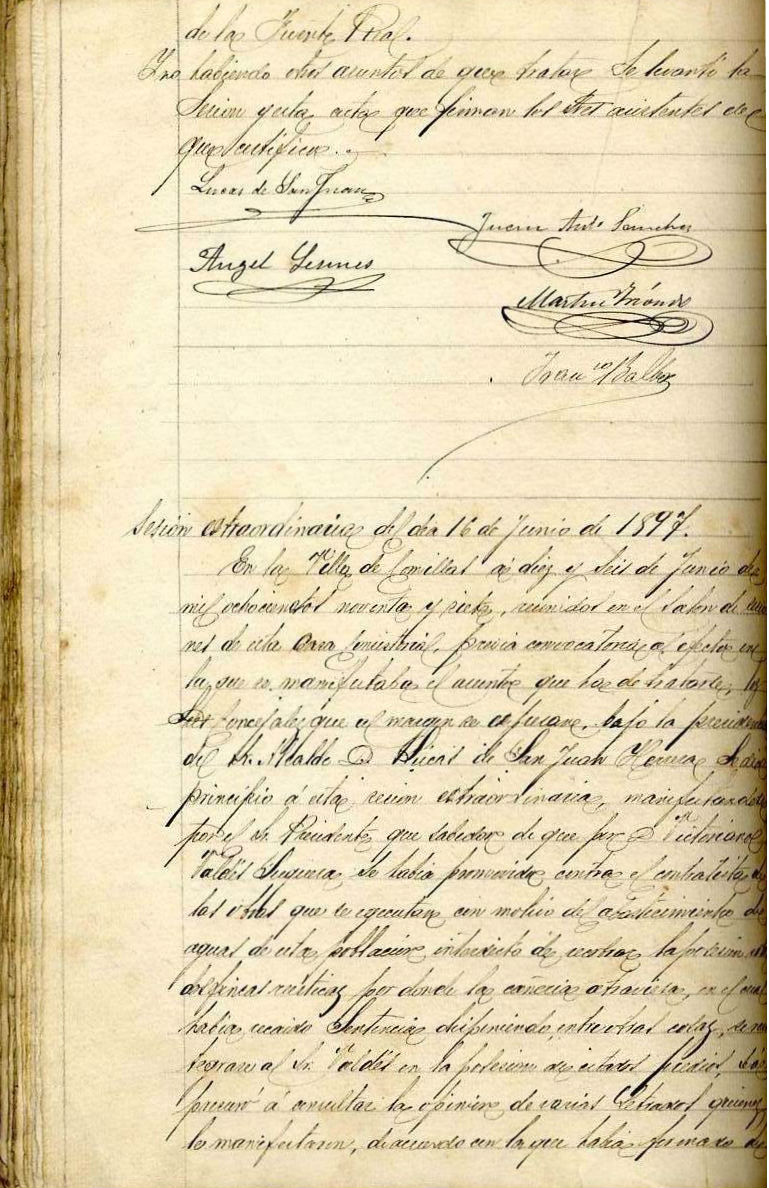 de la Fuente Real.
Y no habiendo otros asuntos de que tratar se levantó la
Sesion y esta acta que firman los Sres asistentes de
que certifico.
Lucas de San Juan
Juan Antº Sanchez
Angel
Martin
Franco Balbas
Sesión extraordinaria del dia 16 de Junio de 1897.
En la Villa de Comillas á diez y seis de Junio de
mil ochocientos noventa y siete, reunidos en el salon de
nes de esta Casa Consistorial, previa convocatoria al efecto en
la que se manifestaba el asunto que ha de tratarse, los
Sres Concejales que al margen se espresan, bajo la presidencia
del Sr. Alcalde D. Lúcas de San Juan Herrera Se dió
principio á esta sesion extraordinaria, manifestandose
por el Sr. Presidente que sabedor de que por D. Victoriano
Valdés se habia promovido contra el contratista de
las obras que se egecutan con motivo del abastecimiento de
aguas de esta poblacion interdicto de recobrar la posesion
de fincas rusticas por donde la cañeria atraviesa, en el cual
habia recaido Sentencia disponiendo entre otras cosas, se
tegrase al Sr. Valdés en la posesion de citados predios,
á consultar la opinion de varios Letrados quienes
le manifestaron, de acuerdo con la que habia formado de